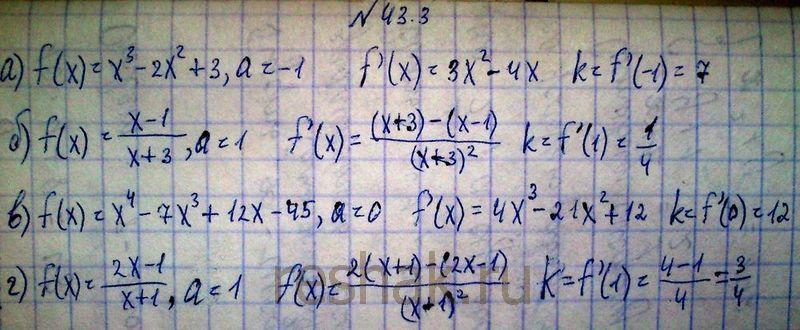 № 43.3
а) f(x) = x³ - 2x² + 3, a = -1 f'(x) = 3x² - 4x k = f'(-1) = 7
б) f(x) = (x-1)/(x+3), a = 1 f'(x) = ((x+3) - (x-1))/(x+3)² k = f'(1) = 1/4
в) f(x) = x⁴ - 7x³ + 12x - 45, a = 0 f'(x) = 4x³ - 21x² + 12 k = f'(0) = 12
г) f(x) = (2x-1)/(x+1), a = 1 f'(x) = (2(x+1) - (2x-1))/(x+1)² k = f'(1) = (4-1)/4 = 3/4
reshak.ru